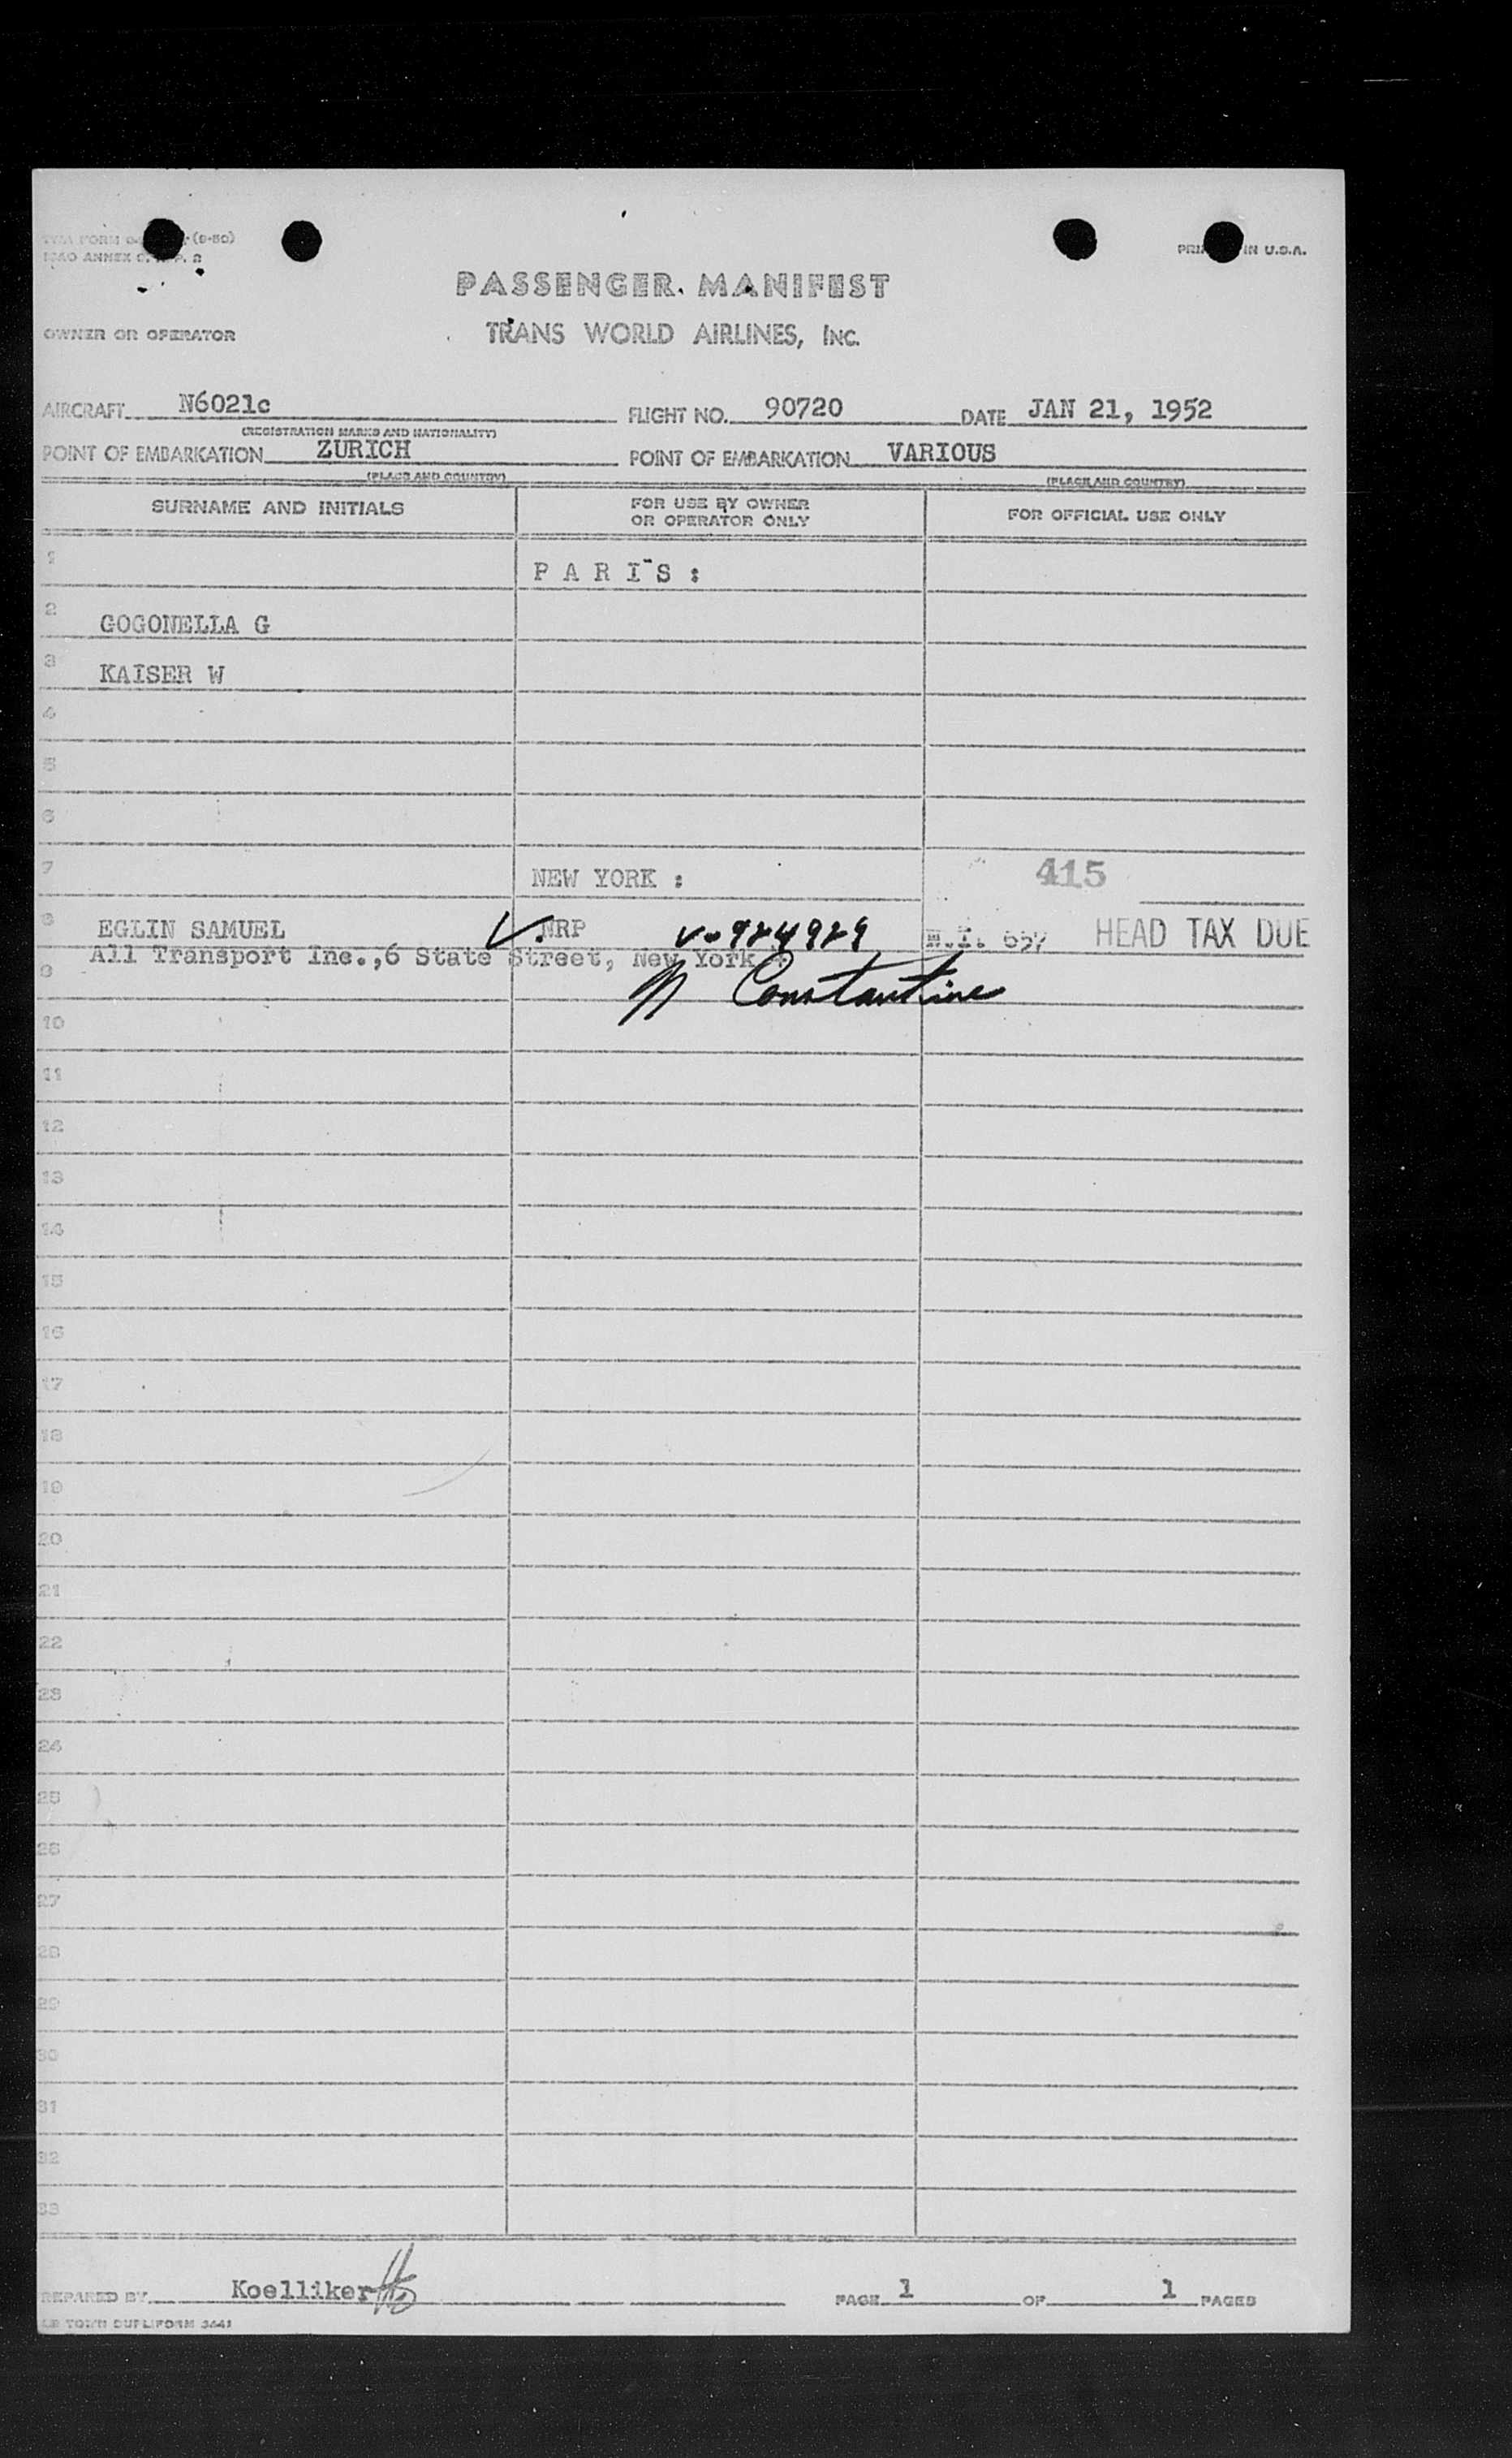 (8-50)
PASSENGER MANIFEST
OWNER OR OPERATOR TRANS WORLD AIRLINES, INC.
AIRCRAFT N6021c FLIGHT NO. 90720 DATE JAN 21, 1952
(REGISTRATION MARKS AND NATIONALITY)
POINT OF EMBARKATION ZURICH POINT OF EMBARKATION VARIOUS
(PLACE AND COUNTRY) (PLACE AND COUNTRY)
SURNAME AND INITIALS FOR USE BY OWNER OR OPERATOR ONLY FOR OFFICIAL USE ONLY
1 PARIS:
2 GOGONELLA G
3 KAISER W
4
5
6
7 NEW YORK : 415
8 EGLIN SAMUEL NRP V-924929 HEAD TAX DUE
All Transport Inc.,6 State Street, New York 4
9 N Constantine
10
11
12
13
14
15
16
17
18
19
20
21
22
23
24
25
26
27
28
29
30
31
32
33
PREPARED BY Koelliker PAGE 1 OF 1 PAGES